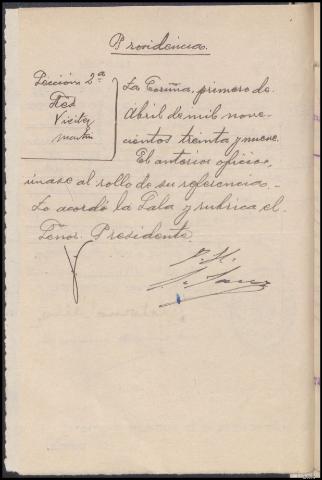 Providencia.
Sección 2ª
Vieitez
Martin
La Coruña, primero de
Abril de mil nove-
cientos treinta y nueve.
El anterior oficio,
únase al rollo de su referencia.-
Lo acordó la Sala y rubrica el
Señor Presidente.